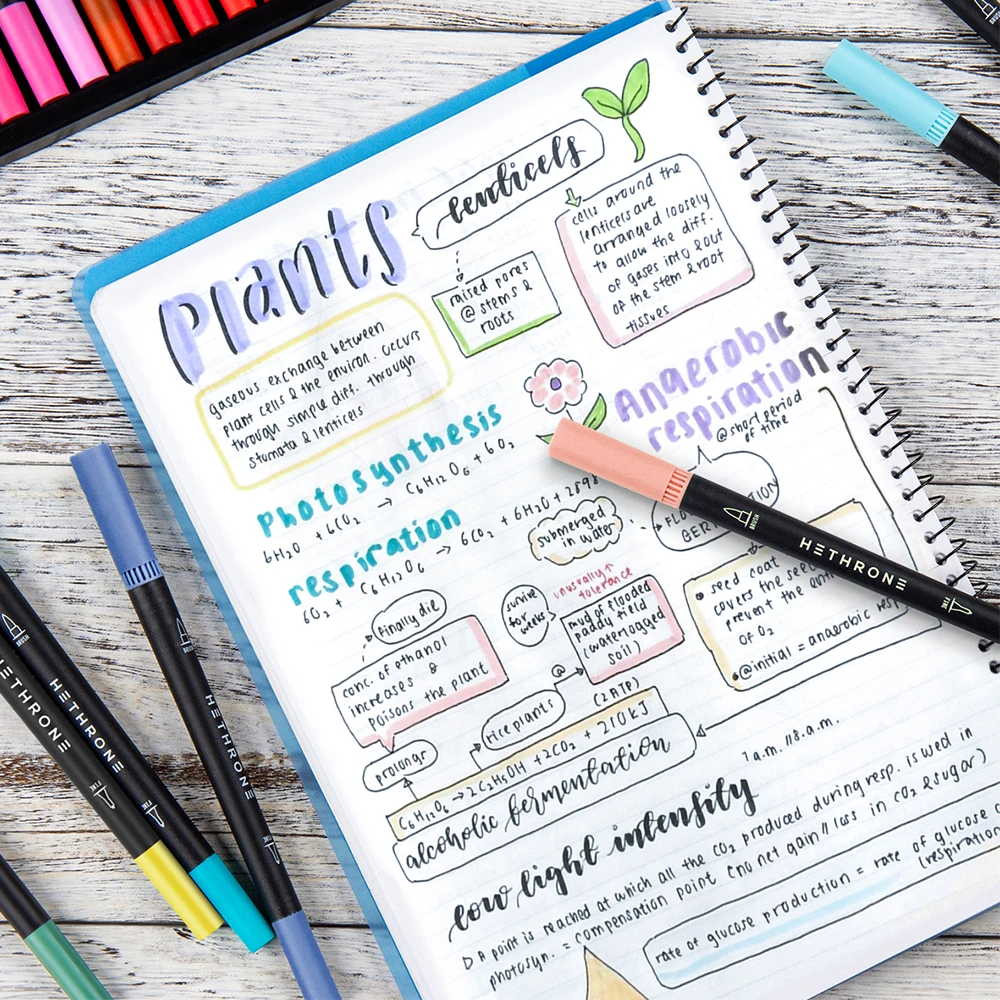 plants
lenticels
raised pores
@ stems &
roots
cells around the
lenticels are
arranged loosely
to allow the diff.
of gases into & out
of the stem & root
tissues
gaseous exchange between
plant cells & the environ. occurs
through simple diff. through
stomata & lenticels
Photosynthesis
6H₂O + 6CO₂ → C₆H₁₂O₆ + 6O₂
respiration
6O₂ + C₆H₁₂O₆ → 6CO₂ + 6H₂O +
Anaerobic
respiration
@ short period
of time
submerged
in water
seed coat
covers the
prevent the
of O₂
@initial = anaerobic
finally die
conc. of ethanol
increases &
poisons the plant
prolongs
survive
for
weeks
unusually ↑
tolerance
mud of flooded
paddy field
(waterlogged
soil)
@
rice plants
(2ATP)
C₆H₁₂O₆ → 2C₂H₅OH + 2CO₂ + 210KJ
alcoholic fermentation
low light intensity
7a.m. // 8.a.m.
A point is reached at which all the CO₂ produced during resp. is used in
photosyn. = compensation point (no net gain // loss in CO₂ & sugar)
rate of glucose production = rate of glucose
(respiration
HETHRONE
BRUSH
HETHRONE
BRUSH
FINE
HETHRONE
FINE
HETHRONE
BRUSH